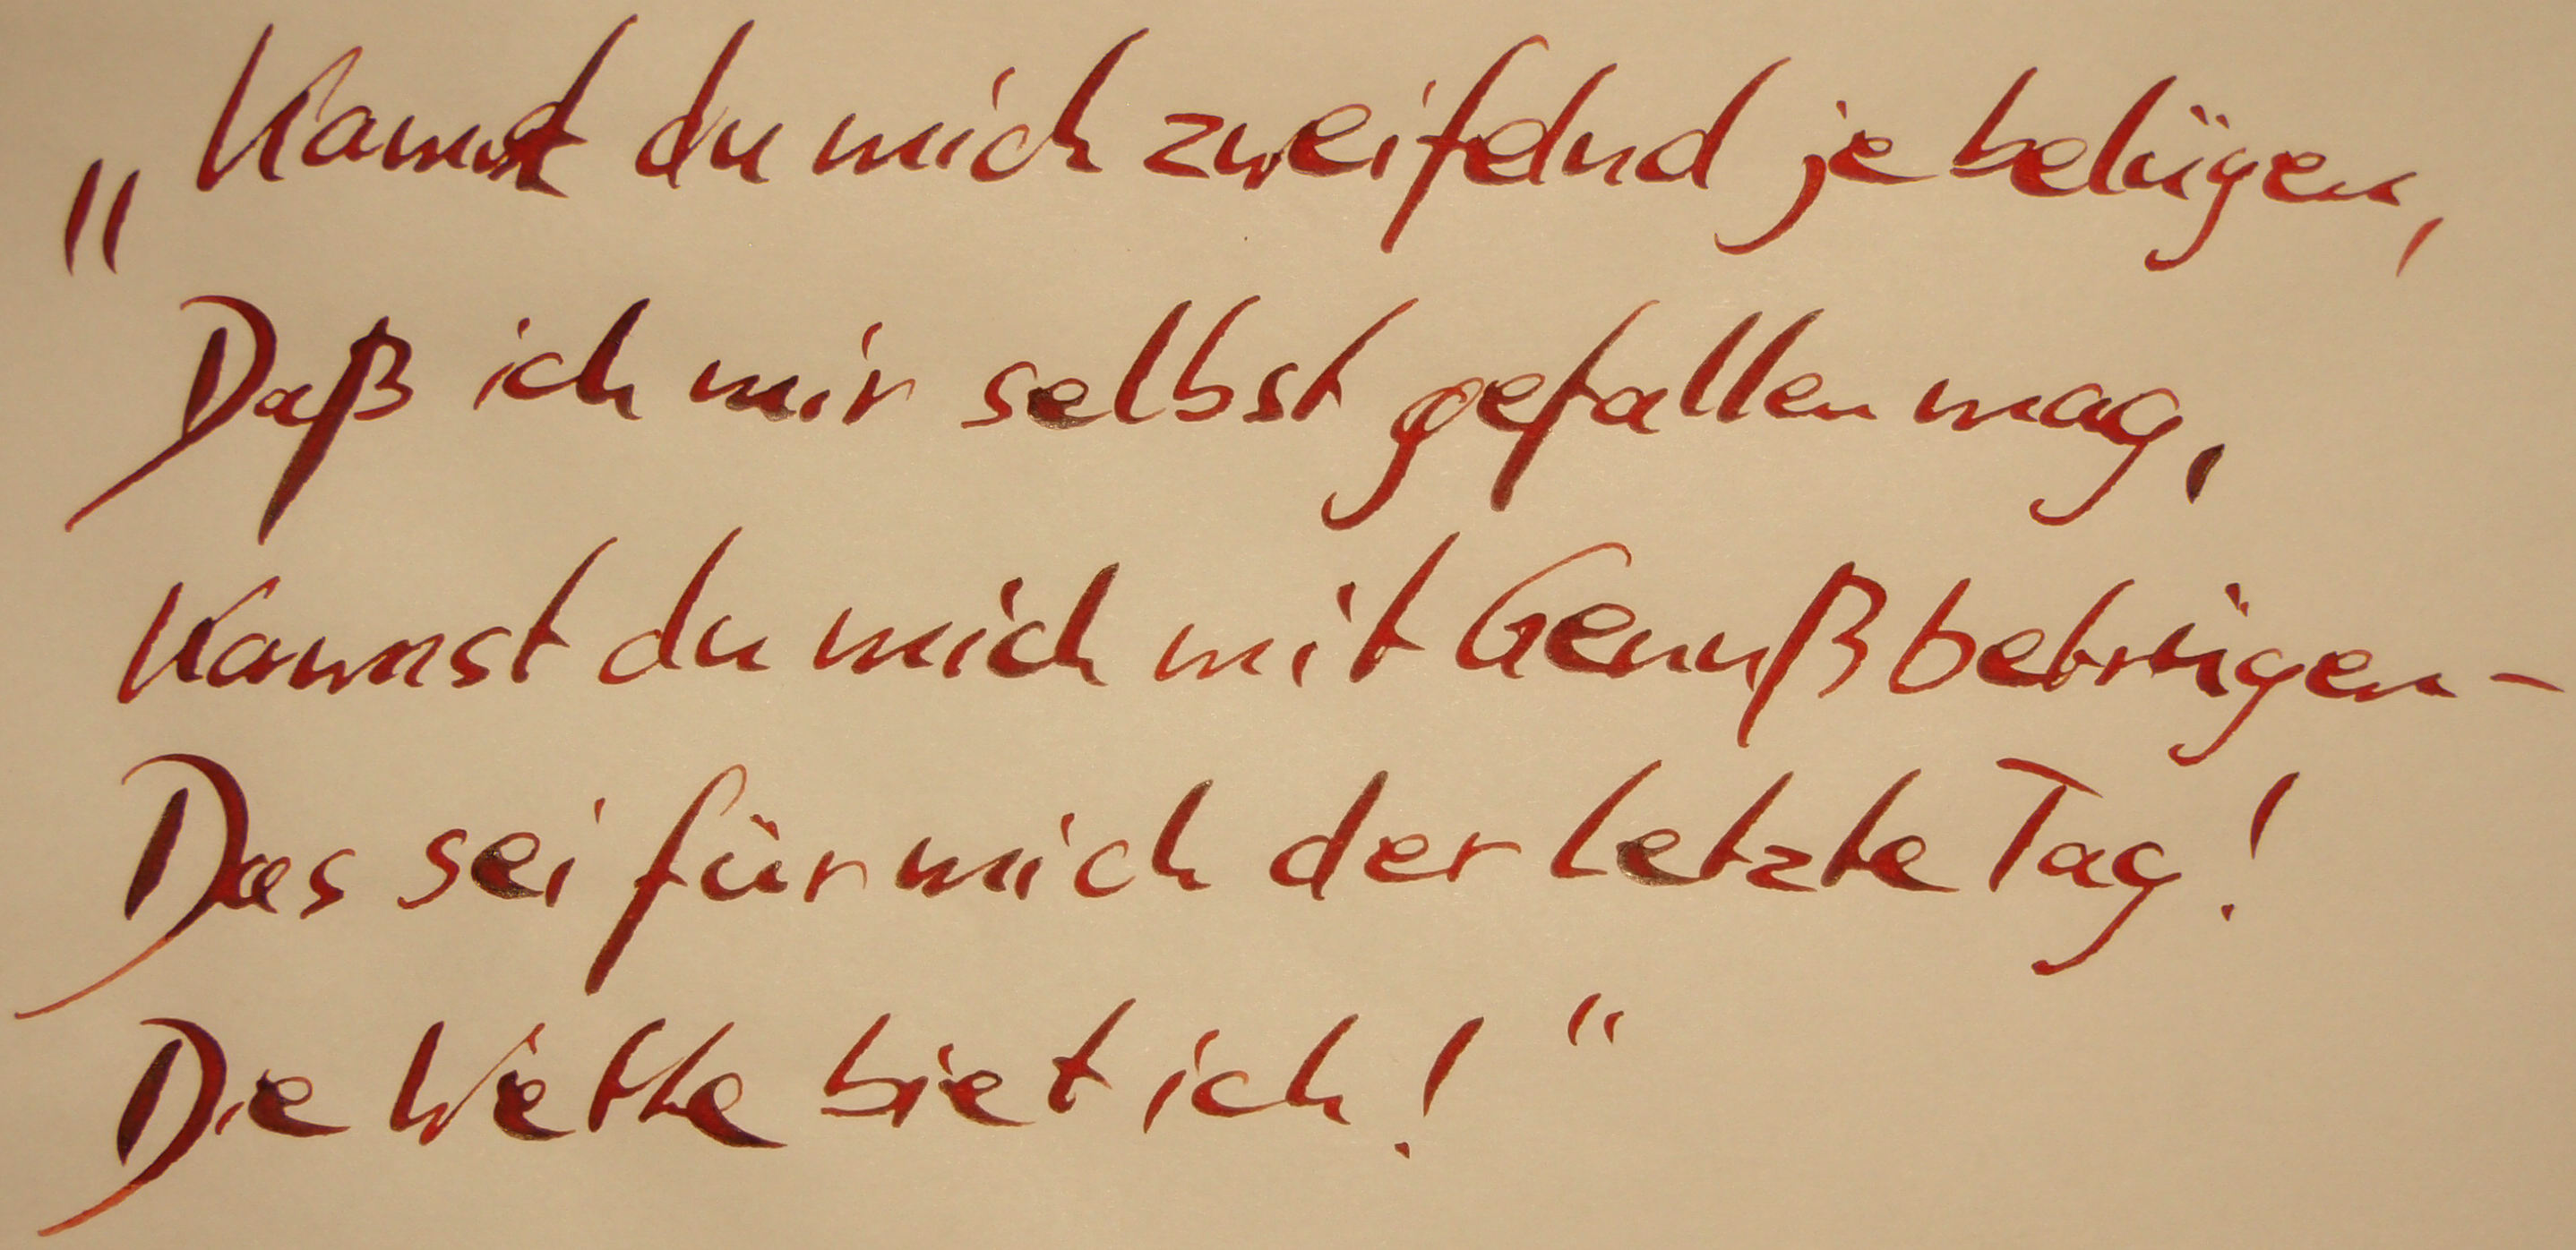 „Kannst du mich zweifelnd je belügen,
Daß ich mir selbst gefallen mag,
Kannst du mich mit Genuß betrügen –
Das sei für mich der letzte Tag!
Die Wette biet ich!“